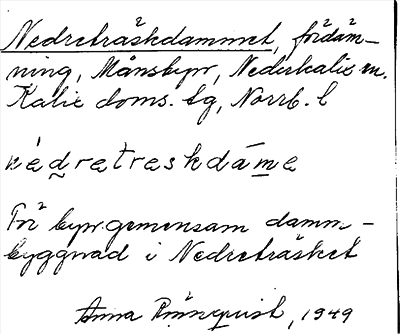 Nedreträskdammet, fördäm-
ning, Månsbyn, Nederkalix sn.
Kalix doms. tg, Norrb. l
nèdretreskdáme
För byn gemensam damm-
byggnad i Nedreträsket
Anna Rönnquist, 1949